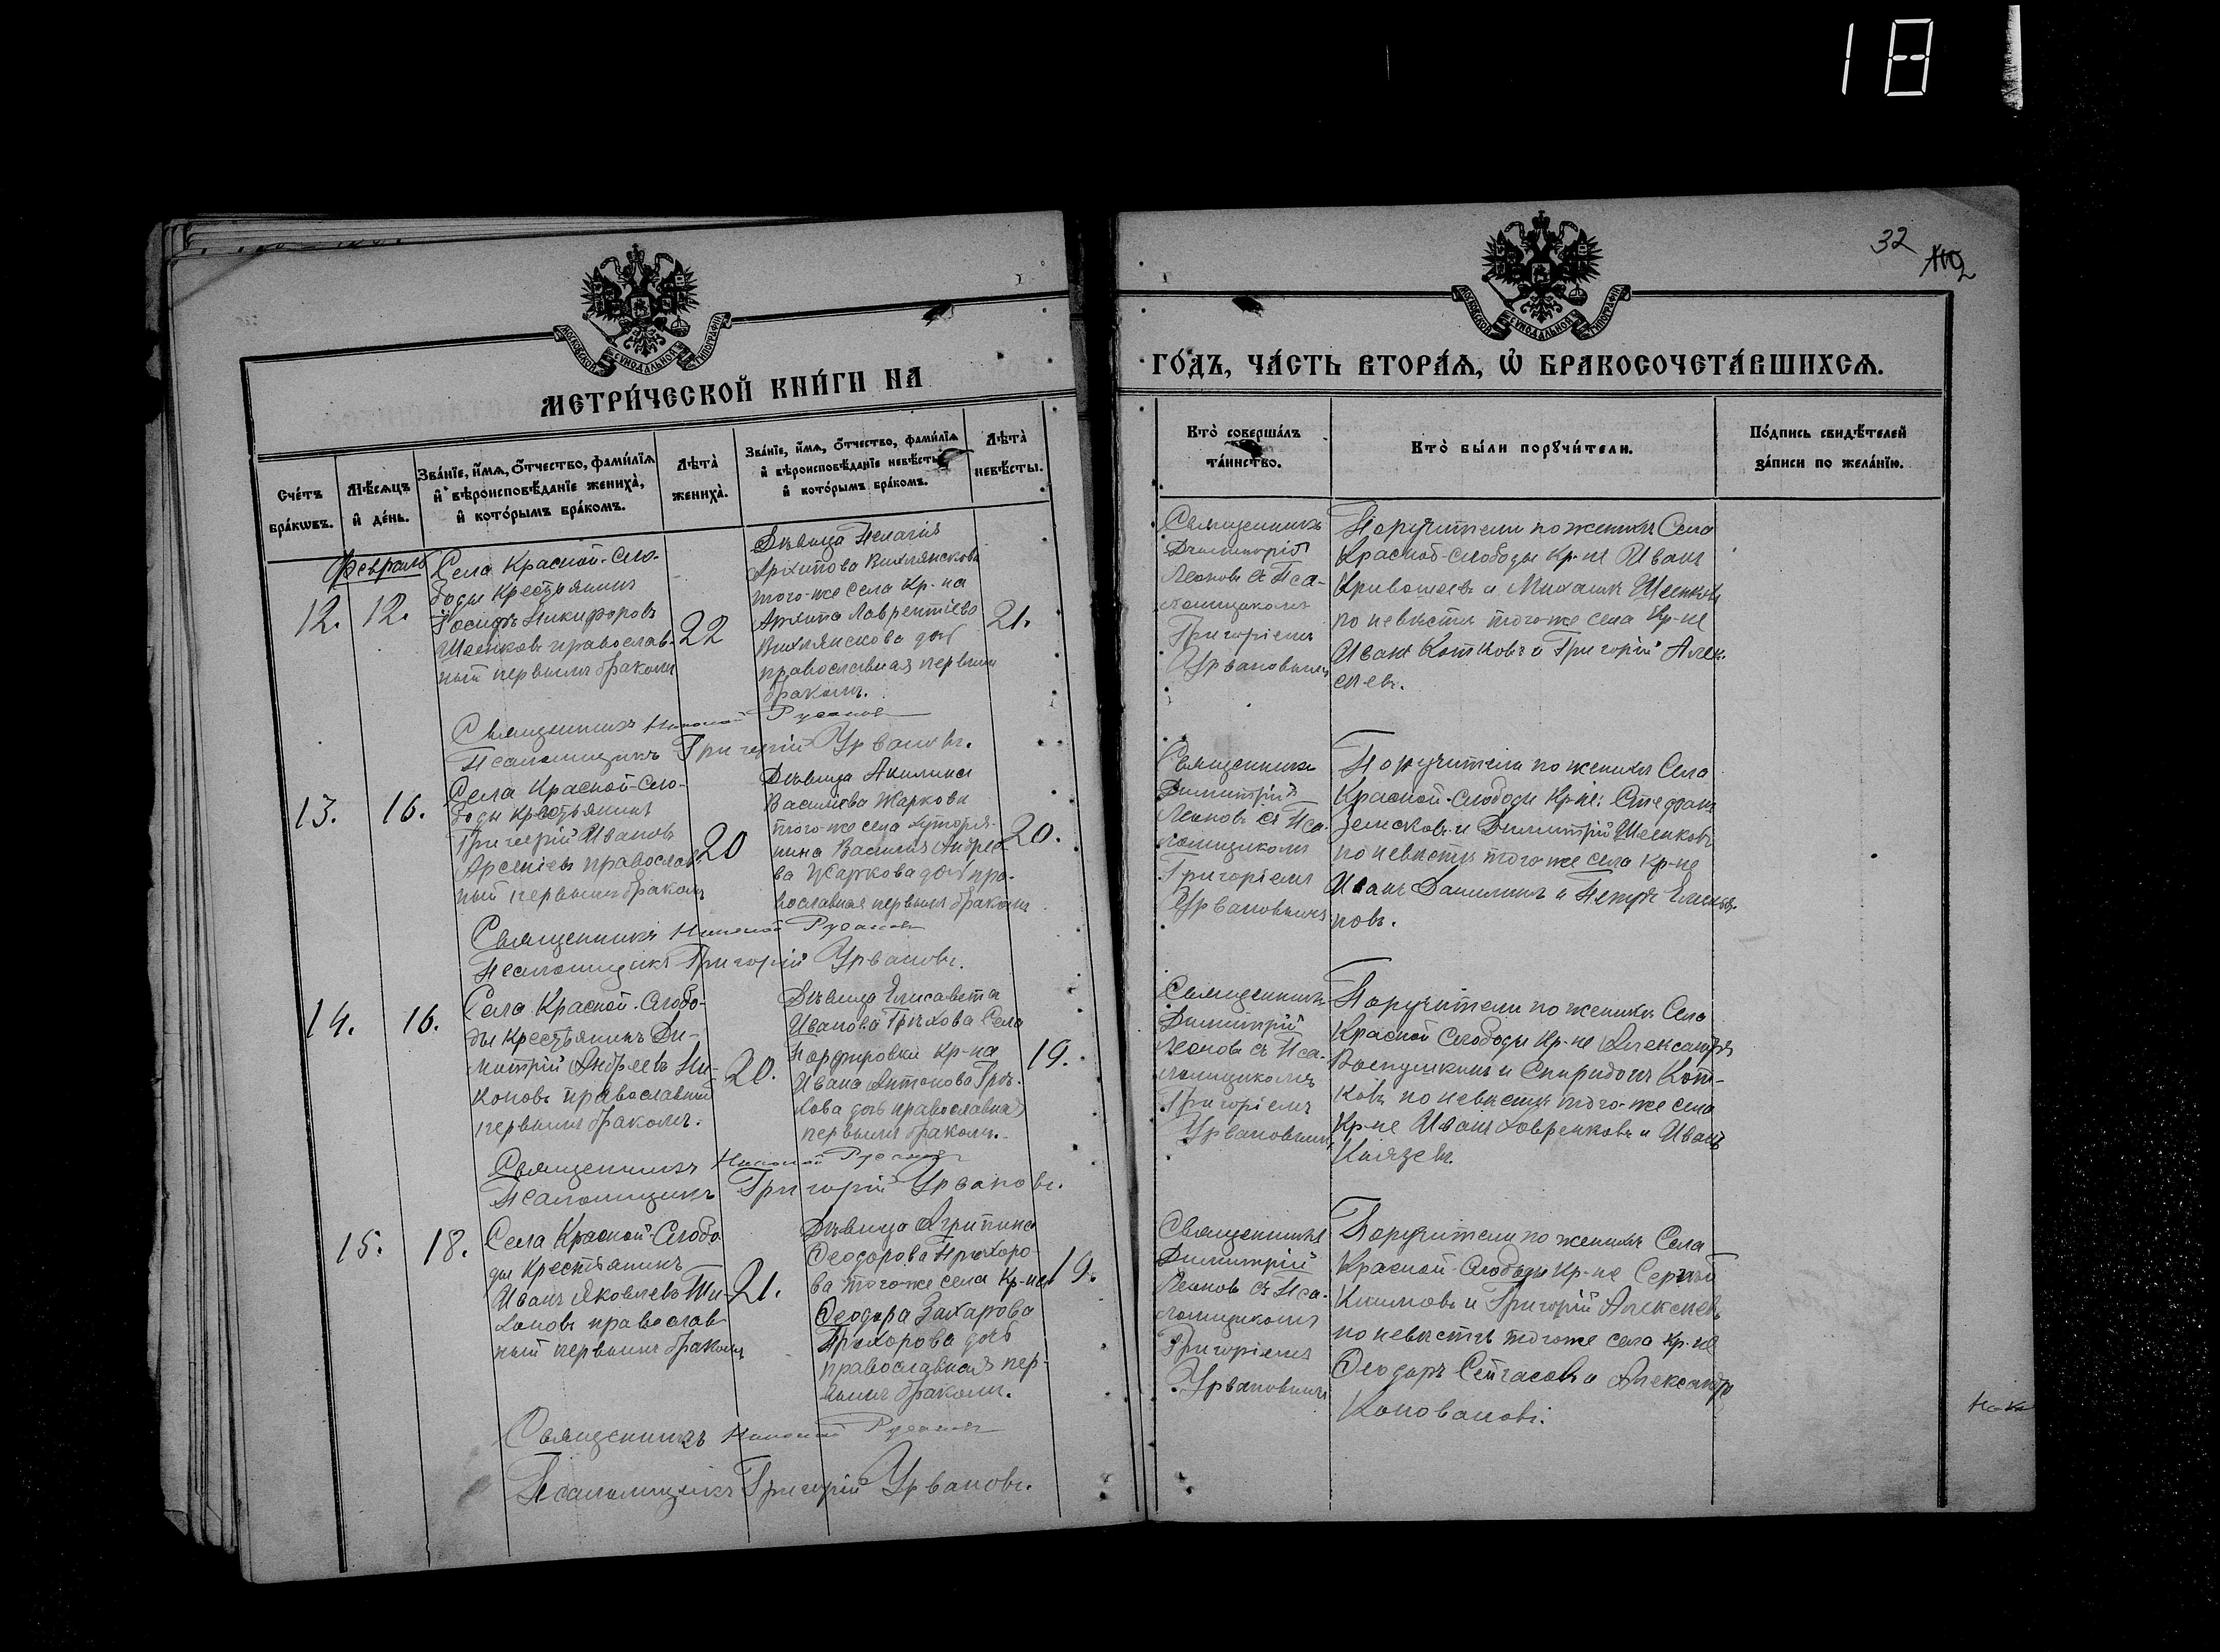 18
32
102
МОСКОВСКОЙ СѴНОДАЛЬНОЙ ТИПОГРАФІИ
МОСКОВСКОЙ СѴНОДАЛЬНОЙ ТИПОГРАФІИ
МЕТРИ́ЧЕСКОЙ КНИ́ГИ НА
ГО́ДЪ, ЧА́СТЬ ВТОРА́Ѧ, Ѽ БРАКОСОЧЕТА́ВШИХСѦ.
Сче́тъ бра́кѡвъ.
Мѣ́сѧцъ и҆ де́нь.
Зва́нїе, и҆́мѧ, ѻ҆́тчество, фами́лїѧ
и҆ вѣроисповѣ́данїе жениха̀,
и҆ кото́рымъ бра́комъ.
Лѣта̀ жениха̀.
Зва́нїе, и҆́мѧ, ѻ҆́тчество, фами́лїѧ
и҆ вѣроисповѣ́данїе невѣ́сты
и҆ кото́рымъ бра́комъ.
Лѣта̀ невѣ́сты.
Кто̀ соверша́лъ
та́инство.
Кто̀ бы́ли порꙋчи́тели.
По́дпись свидѣ́телей
за́писи по жела́нїю.
Февраль
12.
12.
Села Красной-Сло-
боды Крестьянинъ
Іосифъ Никифоровъ
Шеенковъ православ-
ный первымъ бракомъ
22
Дѣвица Пелагія
Архипова Вихлянскова
того-же села Кр-на
Архипа Лаврентіева
Вихлянскова дочь
православная первымъ
бракомъ.
21.
Священникъ
Димитрій
Леоновъ съ Пса-
ломщикомъ
Григоріемъ
Урвановымъ
Поручители по женихѣ Села
Красной-Слободы Кр-не Иванъ
Кривошеевъ и Михаилъ Шеенковъ
по невѣстѣ того-же села Кр-не
Иванъ Котковъ и Григорій Алек-
сѣевъ.
Священникъ Николай Русанов
Псаломщикъ Григорій Урвановъ.
13.
16.
Села Красной-Сло-
боды крестьянинъ
Григорій Ивановъ
Арсеніевъ православ-
ный первымъ бракомъ
20
Дѣвица Акилина
Василіева Жаркова
того-же села хуторя-
нина Василія Андрее-
ва Жаркова дочь пра-
вославная первымъ бракомъ
20.
Священникъ
Димитрій
Леоновъ съ Пса-
ломщикомъ
Григоріемъ
Урвановымъ
Поручители по женихѣ Села
Красной-Слободы Кр-не: Стефанъ
Земсковъ и Димитрій Шеенковъ
по невѣстѣ того-же села Кр-не
Иванъ Данилинъ и Петръ
новъ.
Священникъ Николай Русанов
Псаломщикъ Григорій Урвановъ.
14.
16.
Села Красной-Слобо-
ды Крестьянинъ Ди-
митрій Андреевъ Ни-
коновъ православный
первымъ бракомъ.
20.
Дѣвица Елисавета
Иванова Грѣхова Села
Порфировки Кр-на
Ивана Антонова Грѣ-
хова дочь православная
первымъ бракомъ.
19.
Священникъ
Димитрій
Леоновъ съ Пса-
ломщикомъ
Григоріемъ
Урвановымъ
Поручители по женихѣ Села
Красной Слободы Кр-не Александръ
и Спиридонъ Кот-
ковъ по невѣстѣ того-же села
Кр-не Иванъ Ховренковъ и Иванъ
Князевъ.
Священникъ Николай Русанов
Псаломщикъ Григорій Урвановъ.
15.
18.
Села Красной-Слобо
ды Крестьянинъ
Иванъ Яковлевъ Ти-
хоновъ православ
ный первымъ бракомъ
21.
Дѣвица Агрипина
Ѳеодорова Прохоро-
ва того-же села Кр-на
Ѳеодора Захарова
Прохорова дочь
православная пер-
вымъ бракомъ.
19.
Священникъ
Димитрій
Леоновъ съ Пса-
ломщикомъ
Григоріемъ
Урвановымъ
Поручители по женихѣ Села
Красной-Слободы Кр-не Сергѣй
Климовъ и Григорій Алексѣевъ
по невѣстѣ того-же села Кр-не
Ѳеодоръ и Александръ
Коновановъ.
Священникъ Николай Русанов
Псаломщикъ Григорій Урвановъ.